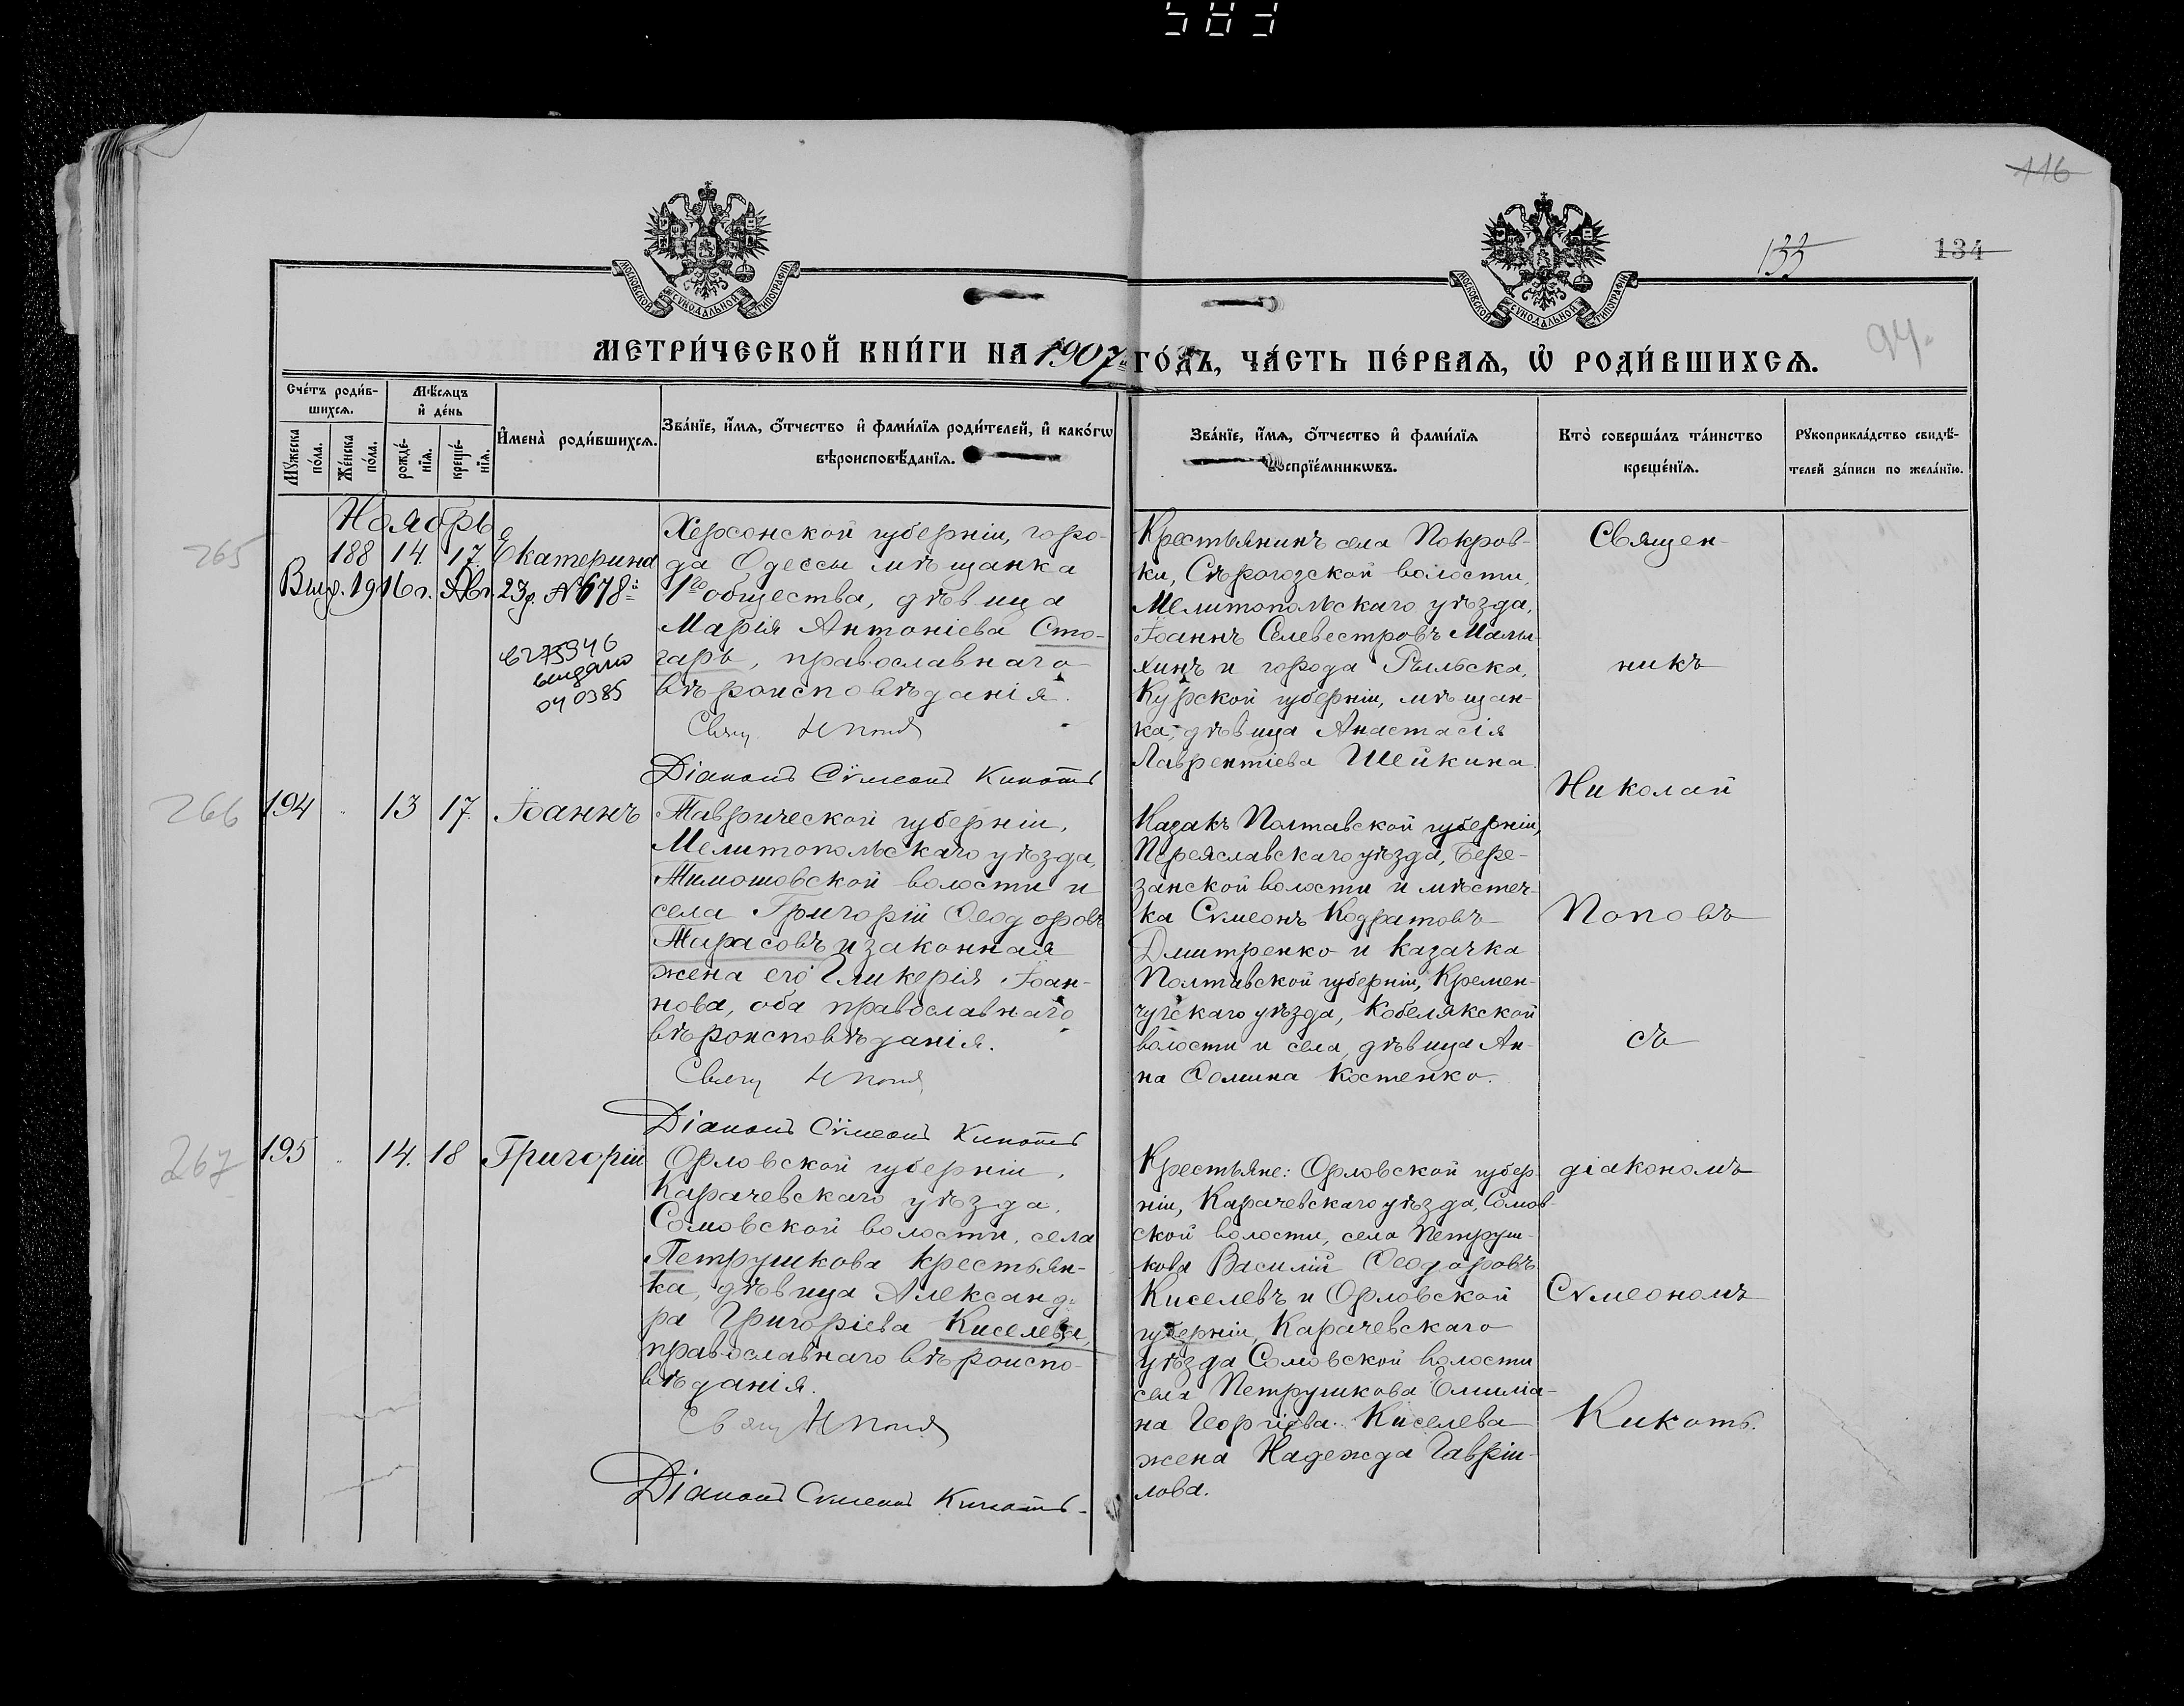 583
116
133
134
94.
МОСКОВСКОЙ СѴНОДАЛЬНОЙ ТИПОГРАФІИ
МОСКОВСКОЙ СѴНОДАЛЬНОЙ ТИПОГРАФІИ
МЕТРИ́ЧЕСКОЙ КНИ́ГИ НА 1907 ГО́ДЪ, ЧА́СТЬ ПЕ́РВАѦ, Ѡ РОДИ́ВШИХСѦ.
Сче́тъ роди́в-
шихсѧ.
Мѣ́сѧцъ
и де́нь
Мꙋ́жеска
по́ла.
Же́нска
по́ла.
рожде́-
нїѧ.
креще́-
нїѧ.
Имена̀ роди́вшихсѧ.
Зва́нїе, и́мѧ, о́тчество и фами́лїѧ роди́телей, и како́гѡ
вѣроисповѣ́данїѧ.
Зва́нїе, и́мѧ, о́тчество и фами́лїѧ
воспрїе́мникѡвъ.
Кто̀ соверша́лъ та́инство
креще́нїѧ.
Рꙋкоприкла́дство свидѣ́-
телей за́писи по жела́нїю.
Ноябрь
265
188 14. 17. Екатерина
Выд. 1916 г. Авг. 23 д. № 678.
673946
выдано
040385
Херсонской губерніи, горо-
да Одессы мѣщанка
1го общества, дѣвица
Марія Антоніева Сто-
гарь, православнаго
вѣроисповѣданія.
Свящ. Н Попов
Діаконъ Сѵмеонъ Кикоть
Крестьянинъ села Покров-
ки, Сѣрогозской волости,
Мелитопольскаго уѣзда,
Іоаннъ Селевестровъ Малы-
хинъ и города Рыльска,
Курской губерніи, мѣщан-
ка, дѣвица Анастасія
Лаврентіева Шейкина.
Священ-
никъ
Николай
Поповъ
съ
діакономъ
Сѵмеономъ
Кикоть.
266
194 13 17. Іоаннъ
Таврической губерніи,
Мелитопольскаго уѣзда,
Тимошовской волости и
села Григорій Ѳеодоровъ
Тарасовъ и законная
жена его Гликерія Іоан-
нова, оба православнаго
вѣроисповѣданія.
Свящ Н Попов
Діаконъ Сѵмеонъ Кикоть
Казакъ Полтавской губерніи,
Переяславскаго уѣзда, Бере-
занской волости и мѣстеч-
ка Сѵмеонъ Кодратовъ
Дмитренко и казачка
Полтавской губерніи, Кремен-
чугскаго уѣзда, Кобелякской
волости и села, дѣвица Ан-
на Ѳомина Костенко.
267
195 14. 18 Григорій
Орловской губерніи,
Карачевскаго уѣзда,
Сомовской волости, села
Петрушкова крестьян-
ка, дѣвица Александ-
ра Григоріева Киселева,
православнаго вѣроиспо-
вѣданія.
Свящ Н Попов
Діаконъ Сѵмеонъ Кикоть
Крестьяне: Орловской губер-
ніи, Карачевскаго уѣзда, Сомов-
ской волости, села Петруш-
кова Василій Ѳеодоровъ
Киселевъ и Орловской
губерніи, Карачевскаго
уѣзда Сомовской волости
села Петрушкова Емиліа-
на Георгіева Киселева
жена Надежда Гавріи-
лова.